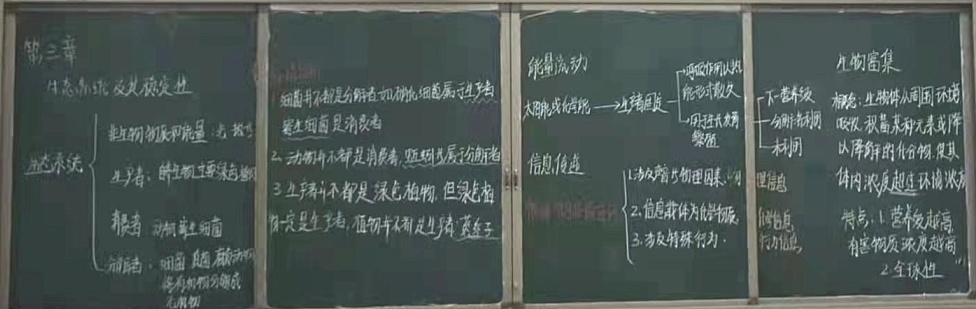 第三章
生态系统及其稳定性
生态系统
非生物物质和能量：光 热
生产者：自养生物，主要绿色植物
消费者：动物 寄生细菌
分解者：细菌 真菌 腐食动物
将有机物分解成
无机物
1.细菌并不都是分解者如硝化细菌属于生产者
寄生细菌是消费者
2.动物并不都是消费者，蚯蚓属于分解者
3.生产者并不都是绿色植物，但绿色植
物一定是生产者，植物并不都是生产者 菟丝子
能量流动
太阳能或化学能
生产者固定
呼吸作用以热
能形式散失
用于生长发育
繁殖
下一营养级
分解者利用
未利用
信息传递
1.涉及声光物理因素
物理信息
2.信息载体为化学物质
化学信息
3.涉及特殊行为
行为信息
生物富集
概念：生物体从周围环境
吸收、积蓄某种元素或难
以降解的化合物，使其
体内浓度超过环境浓度
特点：1.营养级越高
有害物质浓度越高
2.全球性